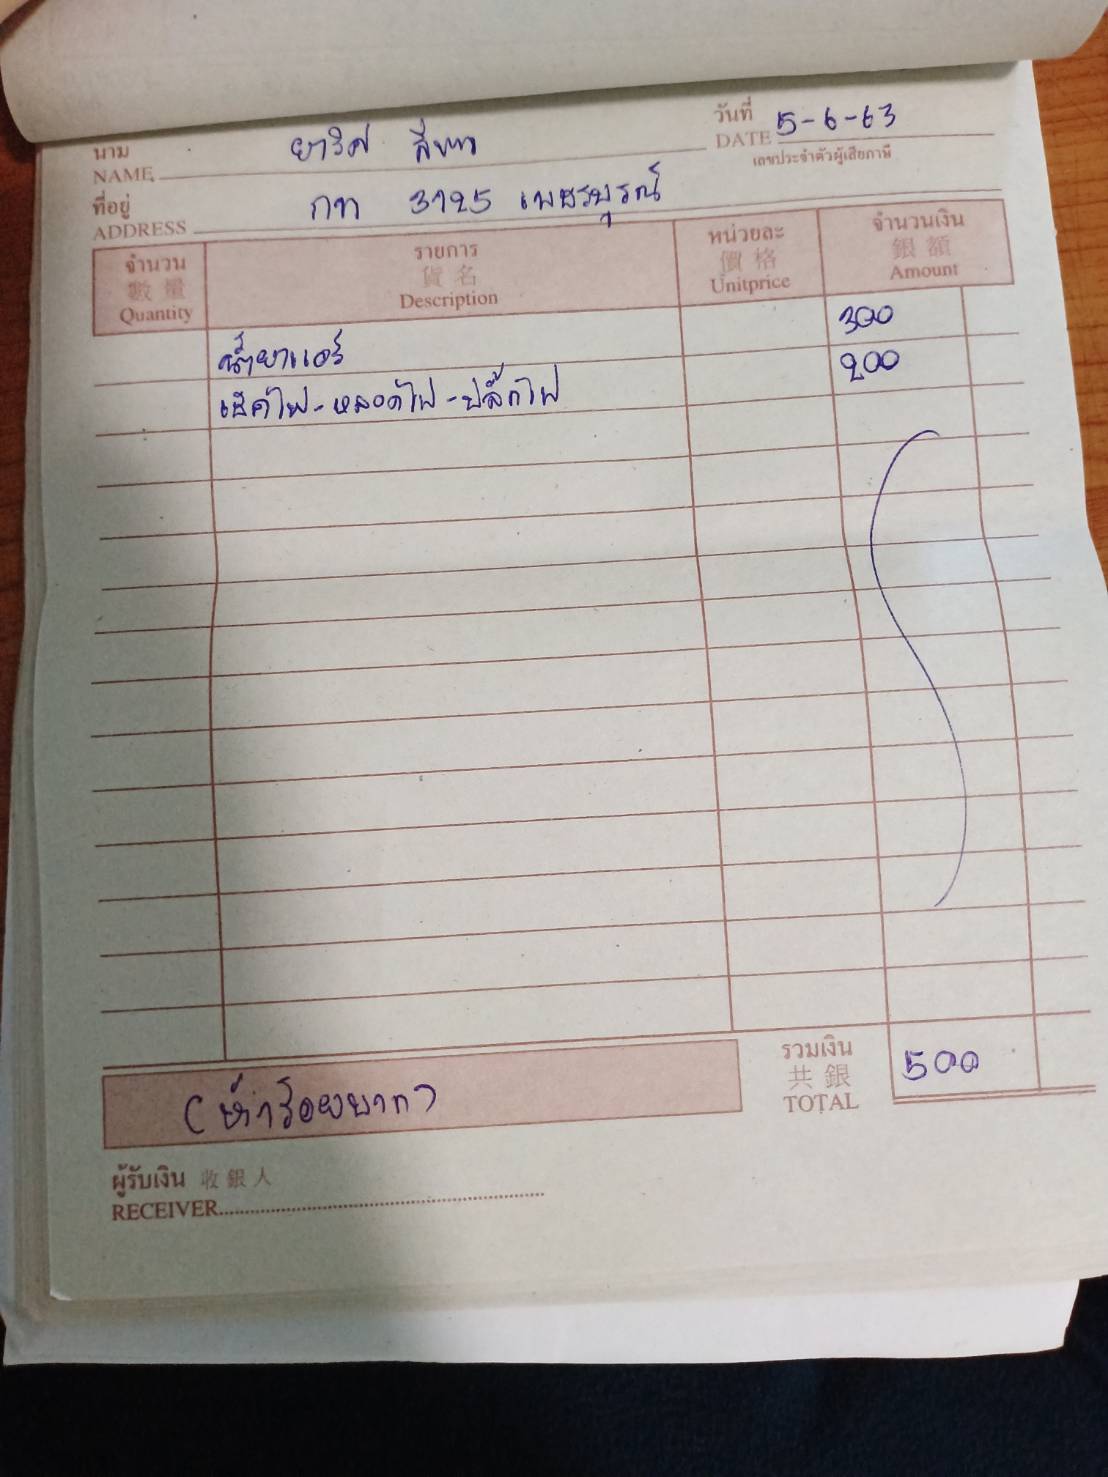 นาม
NAME
วันที่
DATE 5-6-63
เลขประจำตัวผู้เสียภาษี
ที่อยู่ กท 3125 เพชรบูรณ์
ADDRESS
จำนวน 數量 Quantity
รายการ 貨名 Description
หน่วยละ 價格 Unitprice
จำนวนเงิน 銀額 Amount
น้ำยาแอร์ 300
เช็คไฟ-หลอดไฟ-ปลั๊กไฟ 200
รวมเงิน 共銀 TOTAL 500
(ห้าร้อยบาท)
ผู้รับเงิน 收銀人
RECEIVER